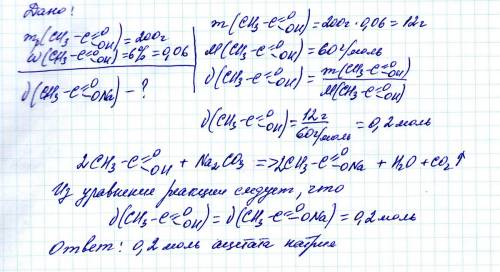 Дано:
m₁(CH₃-C(=O)-OH) = 200г
ω(CH₃-C(=O)-OH) = 6% = 0,06
ν(CH₃-C(=O)-ONa) - ?
m(CH₃-C(=O)-OH) = 200г · 0,06 = 12г
M(CH₃-C(=O)-OH) = 60 г/моль
ν(CH₃-C(=O)-OH) = m(CH₃-C(=O)-OH) / M(CH₃-C(=O)-OH)
ν(CH₃-C(=O)-OH) = 12г / 60г/моль = 0,2 моль
2CH₃-C(=O)-OH + Na₂CO₃ => 2CH₃-C(=O)-ONa + H₂O + CO₂↑
Из уравнения реакции следует, что
ν(CH₃-C(=O)-OH) = ν(CH₃-C(=O)-ONa) = 0,2 моль
Ответ: 0,2 моль ацетата натрия